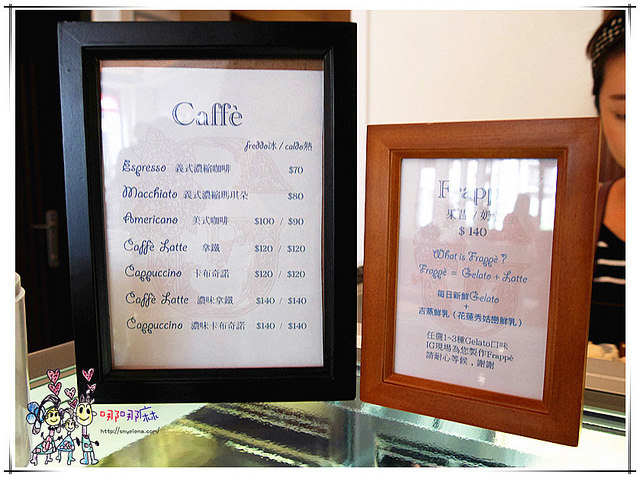 Caffè
freddo冰 / caldo熱
Espresso 義式濃縮咖啡 $70
Macchiato 義式濃縮瑪琪朵 $80
Americano 美式咖啡 $100 / $90
Caffè Latte 拿鐵 $120 / $120
Cappuccino 卡布奇諾 $120 / $120
Caffè Latte 濃味拿鐵 $140 / $140
Cappuccino 濃味卡布奇諾 $140 / $140
Frapp
$ 140
What is Frappè ?
Frappè = Gelato + Latte
每日新鮮Gelato
+
吉蒸鮮乳 (花蓮秀姑巒鮮乳)
任選1~3種Gelato口味
IG現場為您製作Frappè
請耐心等候，謝謝
哪哪麻